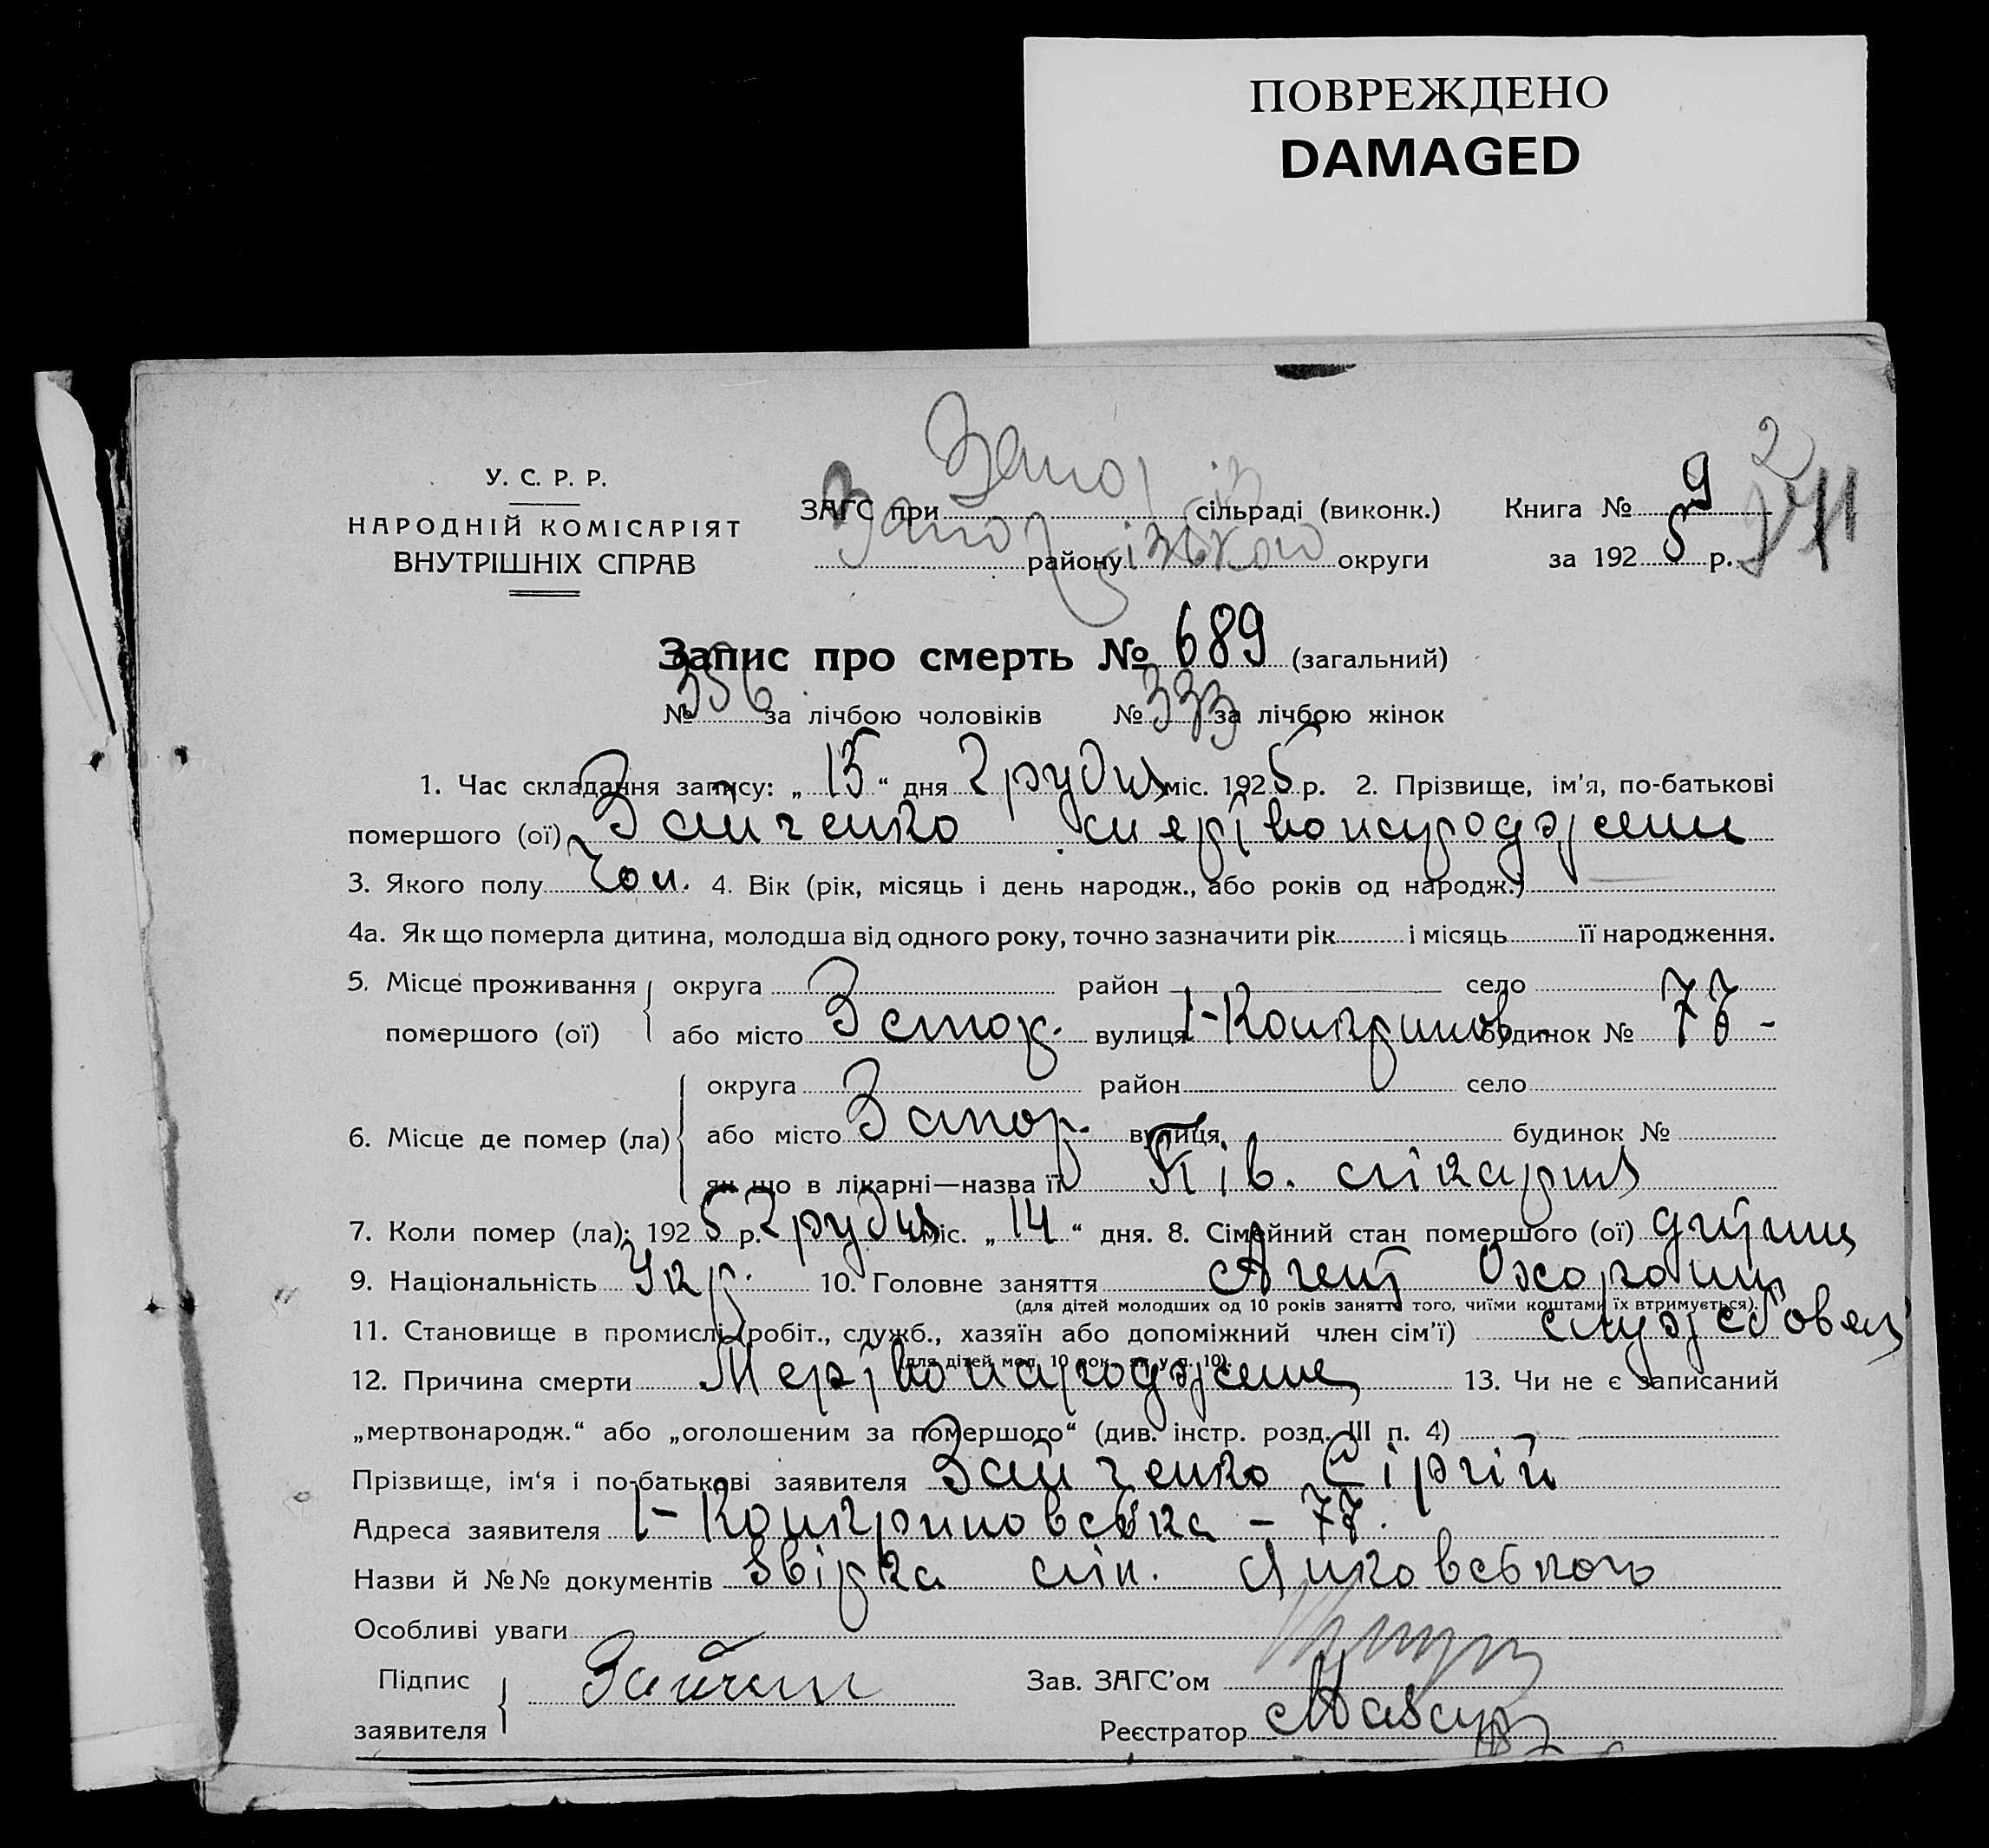 ПОВРЕЖДЕНО
DAMAGED
У. С. Р. Р.
НАРОДНІЙ КОМІСАРІЯТ
ВНУТРІШНІХ СПРАВ
ЗАГС при Запоріз сільраді (виконк.) Книга № 9
району Запорізького округи за 1925 р.
2
Запис про смерть № 689 (загальний)
№ 356 за лічбою чоловіків № 333 за лічбою жінок
1. Час складання запису: „15“ дня Грудня міс. 1925 р. 2. Прізвище, ім'я, по-батькові
помершого (ої) Зайченко мертвонароджени
3. Якого полу Чол. 4. Вік (рік, місяць і день народж., або років од народж.)
4а. Як що померла дитина, молодша від одного року, точно зазначити рік і місяць її народження.
5. Місце проживання округа район село
помершого (ої) або місто Запор. вулиця будинок № 77 -
округа район село
6. Місце де помер (ла) або місто Запор. вулиця будинок №
як що в лікарні—назва її лікарня
7. Коли помер (ла): 1925 р. Грудня міс. „14“ дня. 8. Сімейний стан помершого (ої) дитина
9. Національність Укр. 10. Головне заняття Агент
(для дітей молодших од 10 років заняття того, чиїми коштами їх втримується).
11. Становище в промислі (робіт., служб., хазяїн або допоміжний член сім'ї) службовец
(для дітей мол. 10 рок. як у п. 10).
12. Причина смерти Мертвонароджене 13. Чи не є записаний
„мертвонародж.“ або „оголошеним за помершого“ (див. інстр. розд. III п. 4)
Прізвище, ім'я і по-батькові заявителя Зайченко Сіргій
Адреса заявителя - 77.
Назви й №№ документів лік. Янковського
Особливі уваги
Підпис Зав. ЗАГС'ом
заявителя Зайчен Реєстратор